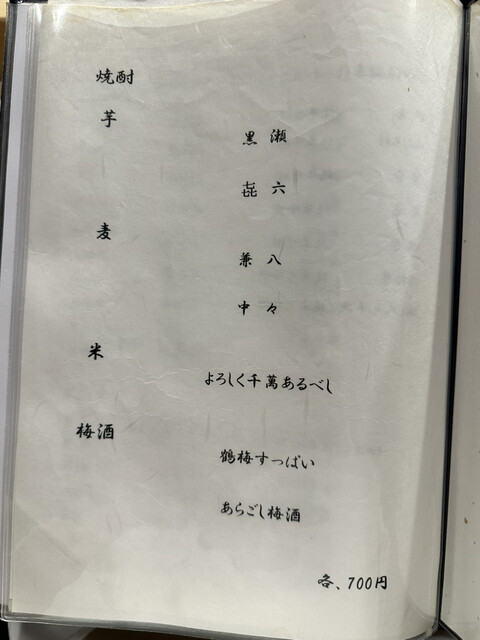 焼酎
芋
黒瀬
㐂六
麦
兼八
中々
米
よろしく千萬あるべし
梅酒
鶴梅すっぱい
あらごし梅酒
各、700円